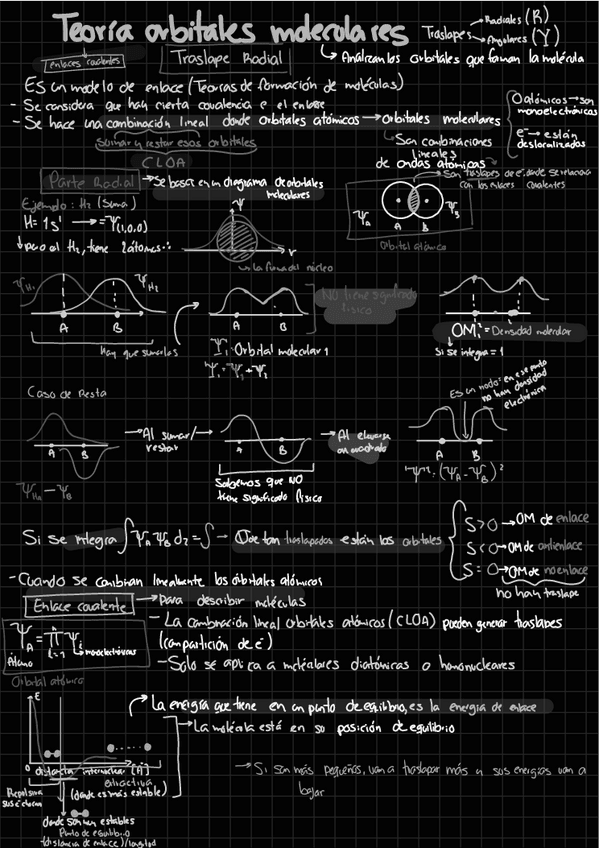 Teoría orbitales moleculares
Traslapes
Radiales (R)
Angulares (Y)
enlaces covalentes
Traslape Radial
Analizan los orbitales que forman la molécula
Es un modelo de enlace (Teorías de formación de moléculas)
- Se considera que hay cierta covalencia e el enlace
- Se hace una combinación lineal donde orbitales atómicos → orbitales moleculares
sumar y restar esos orbitales
CLOA
Son combinaciones
lineales
de ondas atómicas
O atómicos → son
monoelectrónicas
e⁻ → están
deslocalizados
Parte Radial → Se basa en un diagrama de orbitales
moleculares
Son traslapes de e⁻ donde se relaciona
con los enlaces covalentes
Ejemplo: H₂ (Suma)
H = 1s¹ → = Ψ(1,0,0)
pero el H₂, tiene 2 átomos ∴
Ψ
r
es la forma del núcleo
Ψ_A
Ψ_B
A B
Orbital atómico
Ψ_H₁
Ψ_H₂
A B
hay que sumarlas
A B
NO tiene significado
físico
Ψ₁: Orbital molecular 1
Ψ₁ = Ψ₁ + Ψ₂
A B
OM₁² = Densidad molecular
Si se integra = 1
Caso de Resta
Es un nodo: en ese punto
no hay densidad
electrónica
A B
Ψ_H₂ - Ψ_B
→ Al sumar/
restar
A B
Sabemos que NO
tiene significado físico
→ Al elevarse
al cuadrado
A B
Ψ² = (Ψ_A - Ψ_B)²
Si se integra ∫Ψ_A Ψ_B dz = S → Que tan traslapados están los orbitales
S > 0 → OM de enlace
S < 0 → OM de antienlace
S = 0 → OM de no enlace
no hay traslape
- Cuando se combinan linealmente los orbitales atómicos
Enlace covalente → Para describir moléculas
Ψ_A = π Ψ_i
i=1
Átomo
monoelectrónicas
Orbital atómico
- La combinación lineal orbitales atómicos (CLOA) pueden generar traslapes
(compartición de e⁻)
- Solo se aplica a moléculas diatómicas o homonucleares
E
La energía que tiene en un punto de equilibrio, es la energía de enlace
La molécula está en su posición de equilibrio
0 distancia internuclear [A]
Repulsiva
sus e⁻ chocan
atractiva
(donde es más estable)
→ Si son más pequeños, van a traslapar más y sus energías van a
bajar
donde son más estables
Punto de equilibrio
(distancia de enlace)/longitud